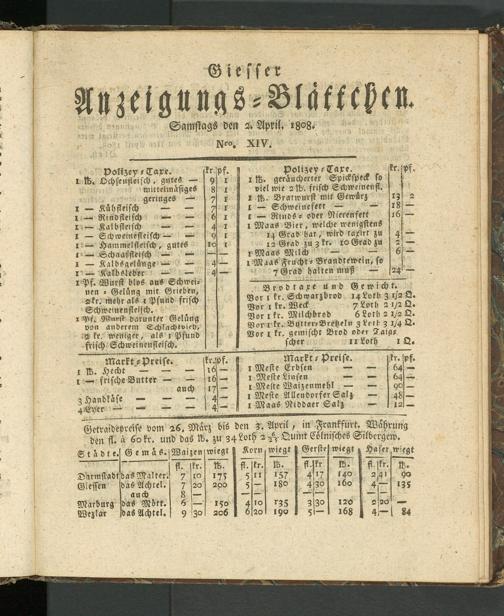 Giesser
Anzeigungs-Blättchen.
Samstags den 2. April. 1808.
Nro. XIV.
Polizey-Taxe. kr. pf.
1 ℔. Ochsenfleisch, gutes — 9 1
mittelmäßiges 8 1
geringes — 7 1
1 — Kühfleisch 7 1
1 — Rindfleisch — 6 1
1 — Kalbfleisch — 4 1
1 — Schweinefleisch — 9 1
1 — Hammelfleisch, gutes 10 1
1 — Schaaffleisch — — —
1 — Kalbsgelünge — 4 —
1 — Kalbsleber — 4 —
1 Pf. Wurst blos aus Schwei-
nen-Gelüng mit Grieben,
2kr. mehr als 1 Pfund frisch
Schweinenfleisch.
1 Pf. Wurst darunter Gelüng
von anderem Schlachtvieh,
2 kr. weniger, als 1 Pfund
frisch Schweinenfleisch.
Polizey-Taxe. kr. pf.
1 ℔. geräucherter Spickspeck so
viel wie 2 ℔. frisch Schweinenfl.
1 ℔. Bratwurst mit Gewürz 13 2
1 — Schweinefett — — 18 —
1 — Rinds- oder Nierenfett 16 —
1 Maas Bier, welche wenigstens
14 Grad hat, wird taxirt zu 4 —
12 Grad zu 3 kr. 10 Grad zu 2 —
1 Maas Milch — — 6 —
1 Maas Frucht-Brandtewein, so
7 Grad halten muß — 24 —
Brodtaxe und Gewicht.
Vor 1 kr. Schwarzbrod 14 Loth 3 1/2 Q.
Vor 1 kr. Weck 7 Loth 2 1/2 Q.
Vor 1 kr. Milchbrod 6 Loth 2 1/2 Q.
Vor 1 kr. Butter-Bretzeln 3 Loth 3 1/4 Q.
Vor 1 kr. gemischt Brod oder Tafs
scher 11 Loth 1 Q.
Markt-Preise. kr. pf.
1 ℔. Hecht — — 16 —
1 — frische Butter — — 16 —
auch 17 —
3 Handkäse — — 4 —
4 Eyer — — — 4 —
Markt-Preise. kr. pf.
1 Meste Erbsen 64 —
1 Meste Linsen — — 64 —
1 Meste Waizenmehl — 90 —
1 Meste Allendorfer Salz — 48 —
1 Maas Niddaer Salz — 12 —
Getraidepreise vom 26. März bis den 3. April, in Frankfurt. Währung
den fl. à 60 kr. und das ℔. zu 34 Loth 2 Quint Cölnisches Silbergew.
Städte. Gemäs. Waizen wiegt Korn wiegt Gerste wiegt Hafer wiegt
fl. kr. ℔. fl. kr. ℔. fl. kr. ℔. fl. kr. ℔.
Darmstadt das Malter. 7 10 175 5 11 157 4 17 140 2 41 90
Giessen das Achtel. 7 20 200 5 — 180 4 30 160 4 — 135
auch 8 — — — — — — —
Marburg das Mött. 6 — 150 4 10 135 3 30 120 2 20 —
Wezlar das Achtel. 9 30 206 6 20 190 5 — 168 4 — 84